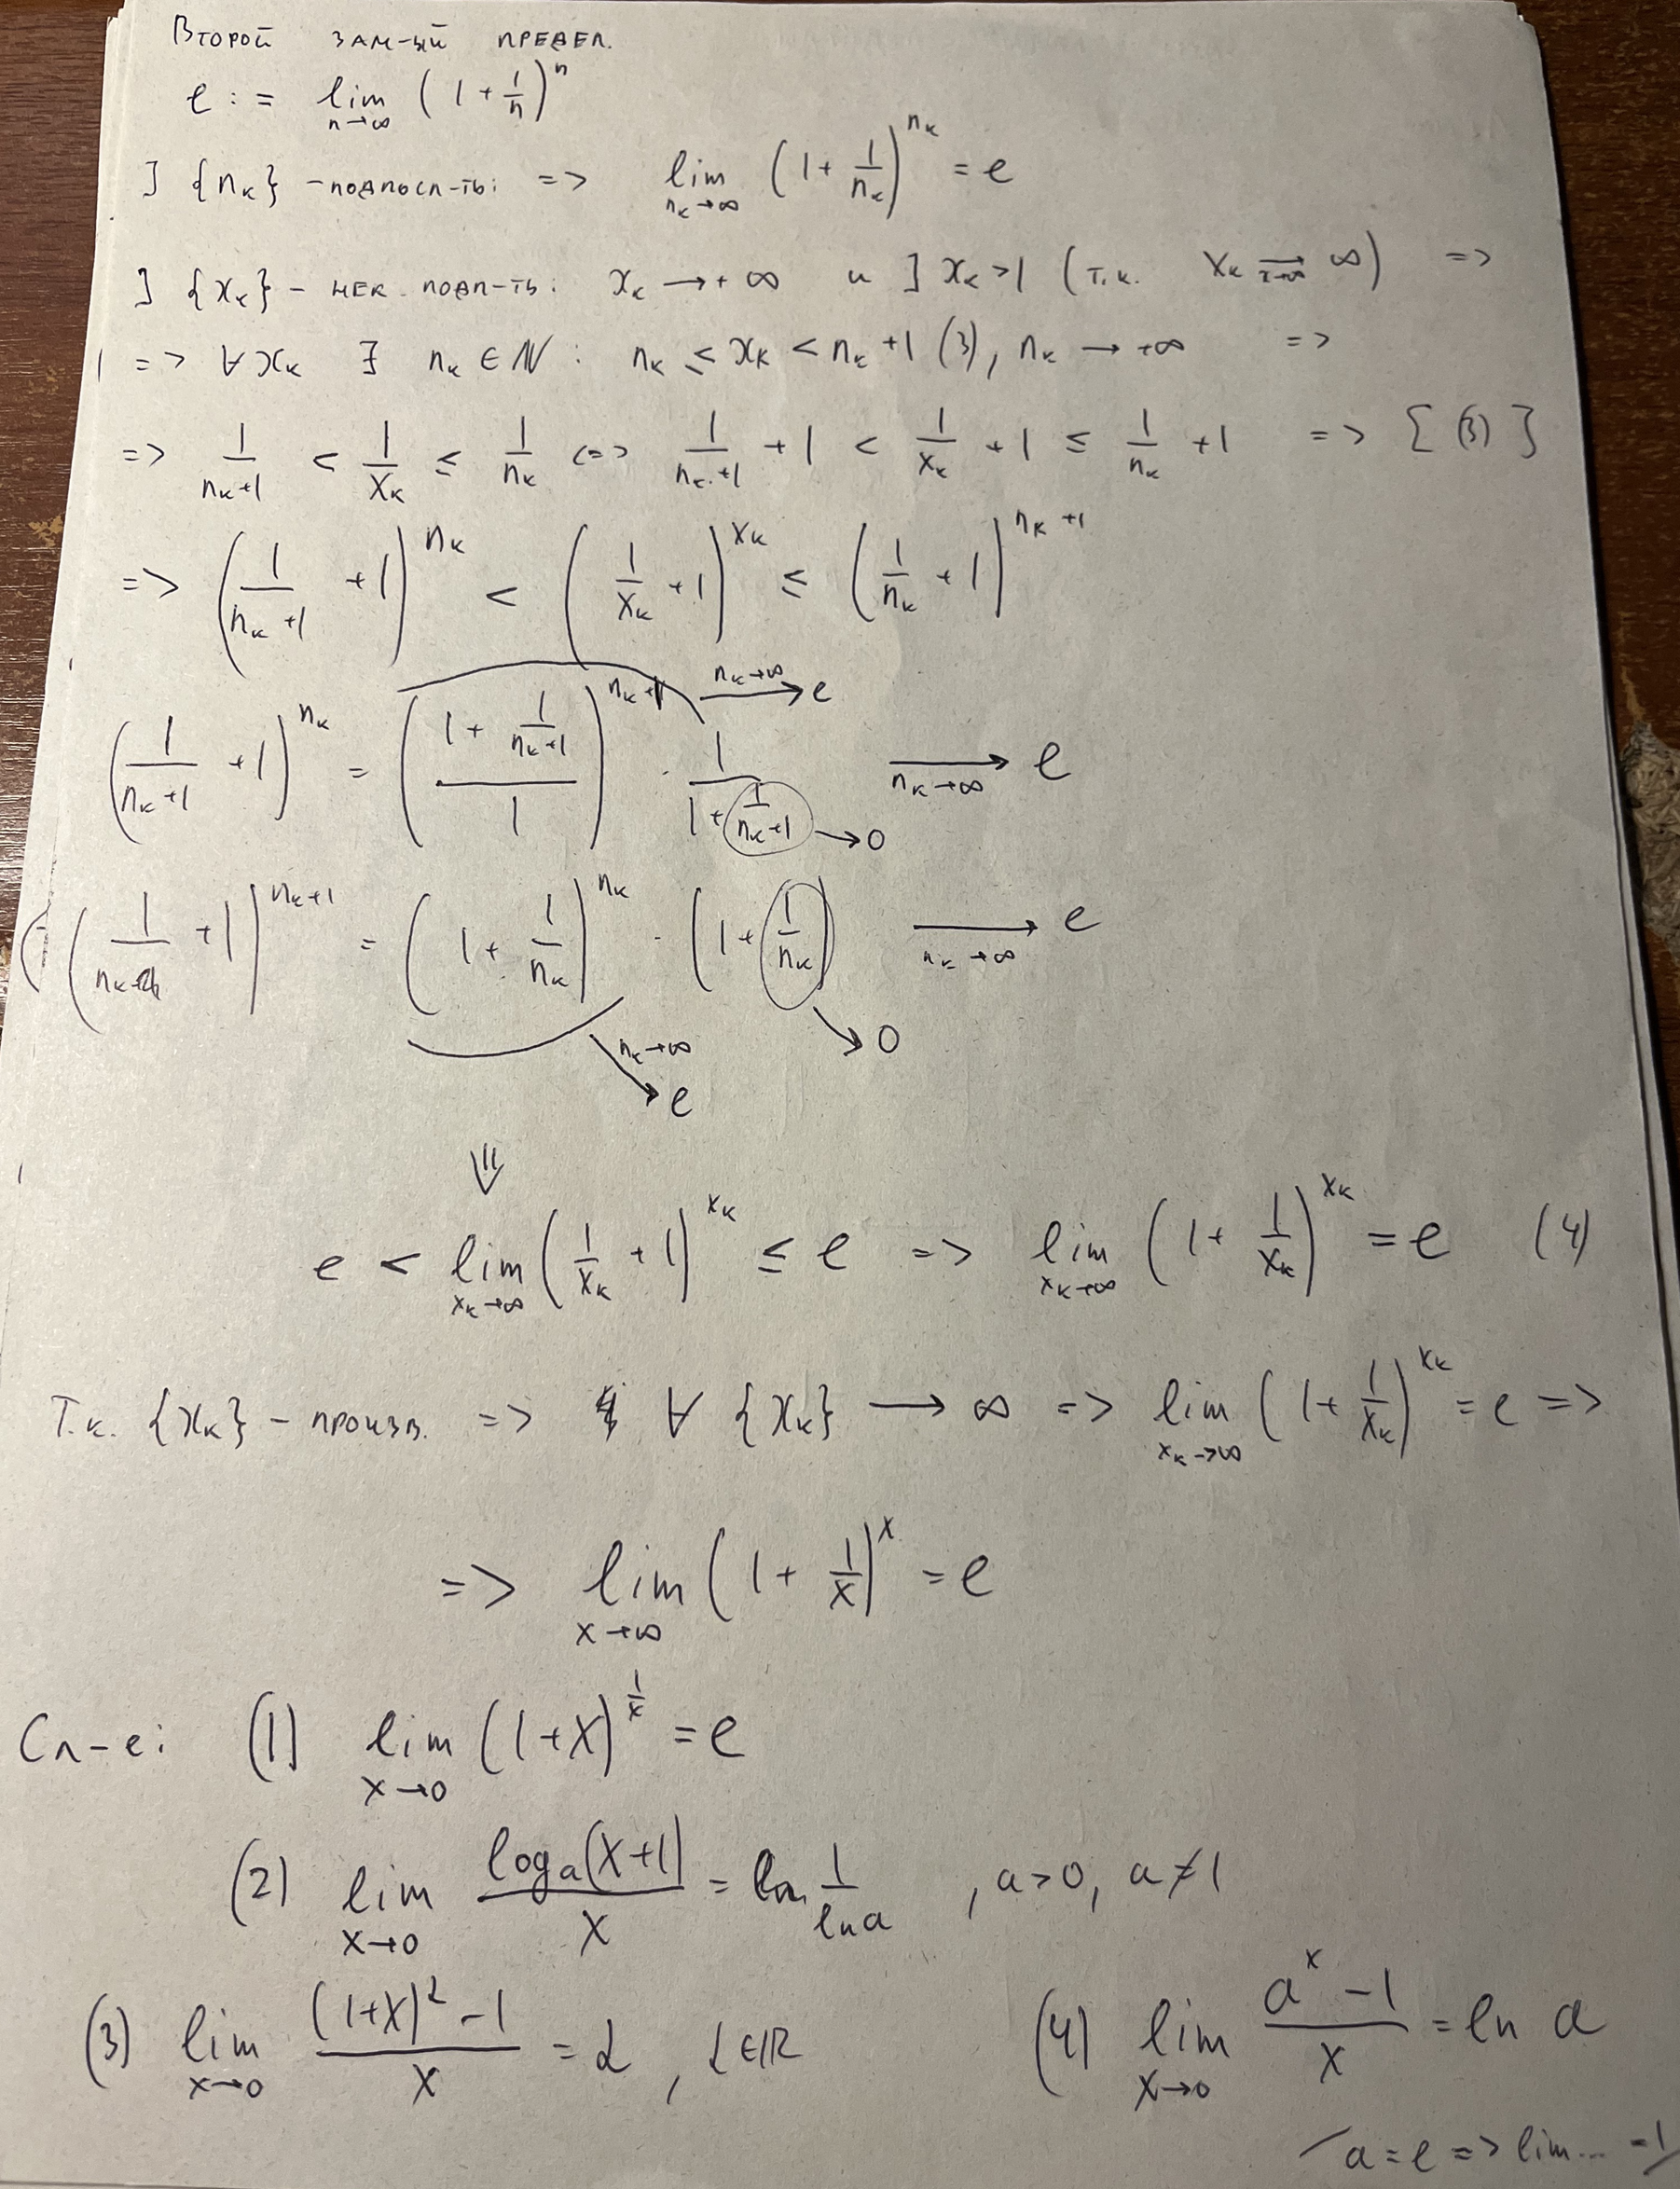 Второй зам-ый предел.
e := lim_{n→∞} (1 + 1/n)^n
] {n_k} - подпосл-ть: => lim_{n_k→∞} (1 + 1/n_k)^{n_k} = e
] {x_k} - нек. подп-ть: x_k → +∞ и ] x_k > 1 (т.к. x_k → ∞) =>
=> ∀ x_k ∃ n_k ∈ N : n_k ≤ x_k < n_k + 1 (3), n_k → +∞ =>
=> 1/(n_k+1) < 1/x_k ≤ 1/n_k <=> 1/(n_k+1) + 1 < 1/x_k + 1 ≤ 1/n_k + 1 => [(3)]
=> (1/(n_k+1) + 1)^{n_k} < (1/x_k + 1)^{x_k} ≤ (1/n_k + 1)^{n_k+1}
(1/(n_k+1) + 1)^{n_k} = ((1 + 1/(n_k+1))/1)^{n_k+1} →_{n_k→∞} e · 1/(1 + 1/(n_k+1)) → 0 →_{n_k→∞} e
(1/n_k + 1)^{n_k+1} = (1 + 1/n_k)^{n_k} · (1 + 1/n_k) →_{n_k→∞} e
n_k→∞ → e → 0
⇓
e < lim_{x_k→∞} (1/x_k + 1)^{x_k} ≤ e => lim_{x_k→∞} (1 + 1/x_k)^{x_k} = e (4)
Т.к. {x_k} - произв. => ∀ {x_k} → ∞ => lim_{x_k→∞} (1 + 1/x_k)^{x_k} = e =>
=> lim_{x→∞} (1 + 1/x)^x = e
Сл-е: (1) lim_{x→0} (1+x)^{1/x} = e
(2) lim_{x→0} log_a(x+1)/x = 1/ln a , a>0, a≠1
(3) lim_{x→0} ((1+x)^α - 1)/x = α , α∈R (4) lim_{x→0} (a^x - 1)/x = ln a
a = e => lim... = 1